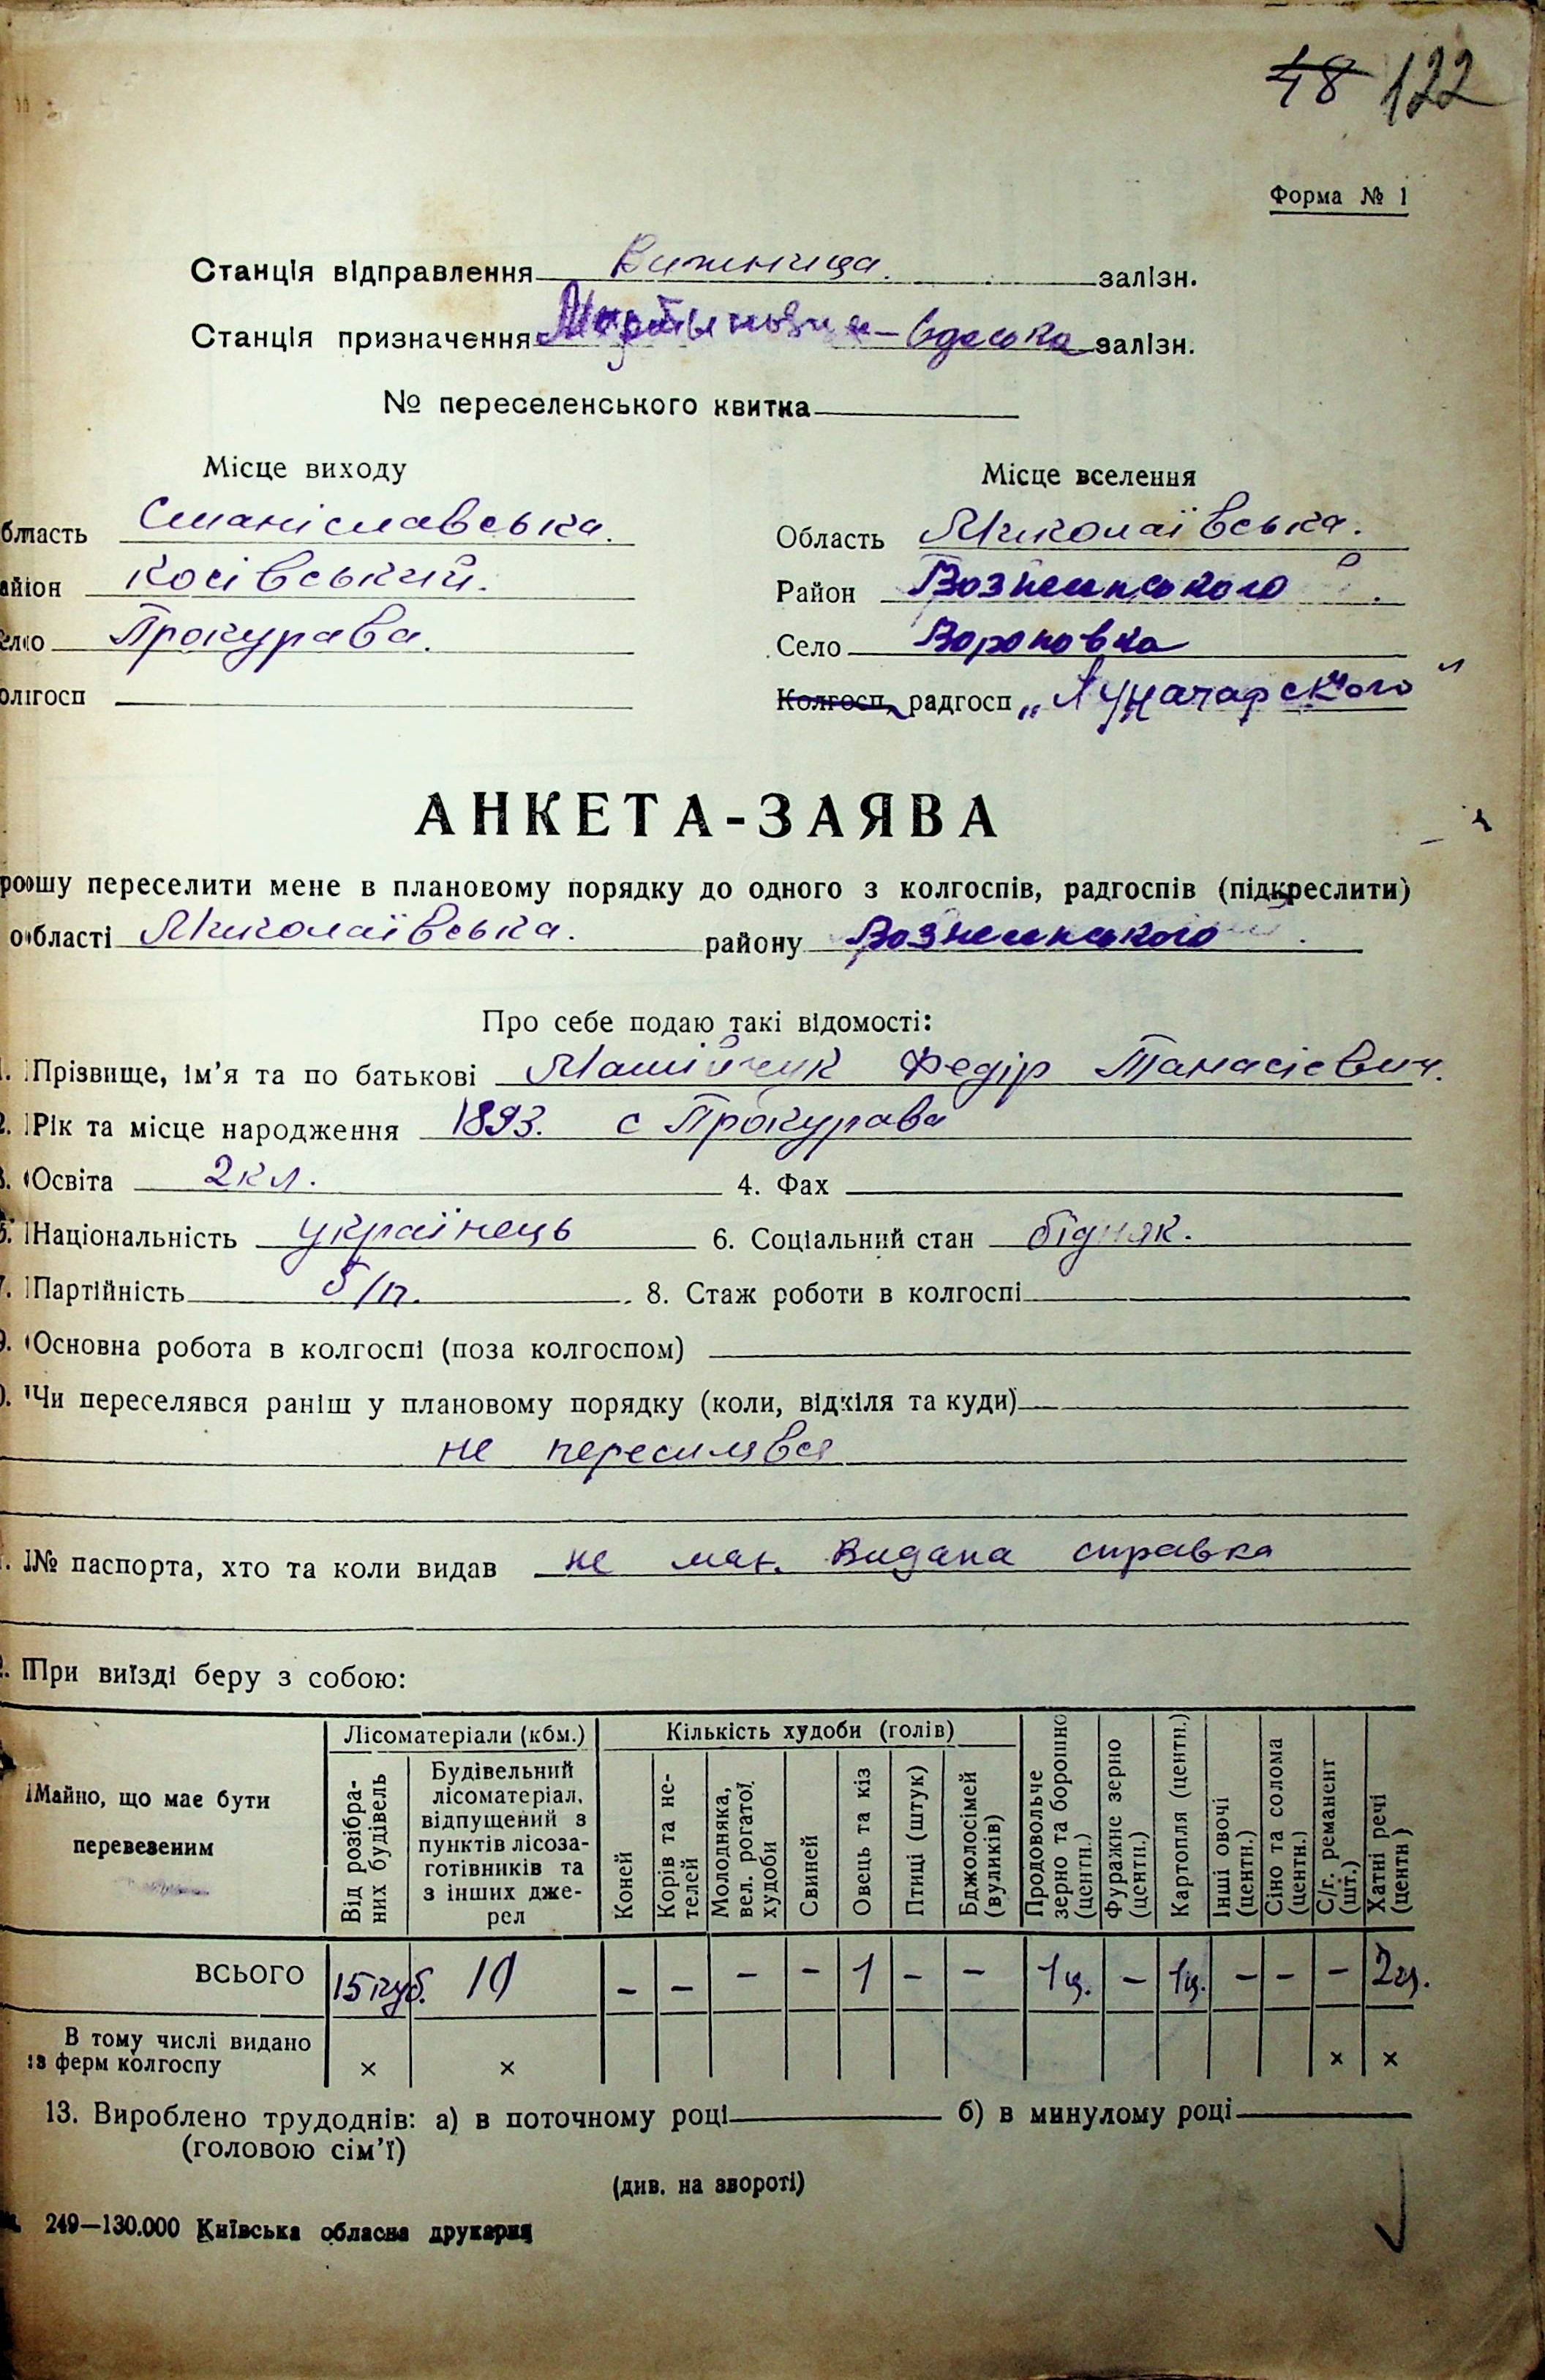 48 122
Форма № 1
Станція відправлення Вижниця. залізн.
Станція призначення Мартыновка-Одеська залізн.
№ переселенського квитка
Місце виходу
Місце вселення
бласть Станіславська.
Область Миколаївська.
айон Косівський.
Район Вознесенського
ело Прокурава.
Село Вороновка
олгосп
Колгосп, радгосп „Луначарського"
АНКЕТА-ЗАЯВА
рошу переселити мене в плановому порядку до одного з колгоспів, радгоспів (підкреслити)
області Миколаївська. району Вознесенського
Про себе подаю такі відомості:
1. Прізвище, ім’я та по батькові Матійчук Федір Танасієвич.
2. Рік та місце народження 1893. с Прокурава
3. Освіта 2 кл. 4. Фах
5. Національність українець 6. Соціальний стан бідняк.
7. Партійність б/п. 8. Стаж роботи в колгоспі
9. Основна робота в колгоспі (поза колгоспом)
0. Чи переселявся раніш у плановому порядку (коли, відкіля та куди)
не переселявся
. № паспорта, хто та коли видав не має. Видана справка
. При виїзді беру з собою:
Майно, що має бути перевезеним
Лісоматеріали (кбм.)
Від розібраних будівель
Будівельний лісоматеріал, відпущений з пунктів лісозаготівників та з інших джерел
Кількість худоби (голів)
Коней
Корів та нетелей
Молодняка, вел. рогатої худоби
Свиней
Овець та кіз
Птиці (штук)
Бджолосімей (вуликів)
Продовольче зерно та борошно (центн.)
Фуражне зерно (центн.)
Картопля (центн.)
Інші овочі (центн.)
Сіно та солома (центн.)
С/г. реманент (шт.)
Хатні речі (центн)
ВСЬОГО 15 куб. 10 – – – – 1 – – 1 ц. – 1 ц. – – – 2 ц.
В тому числі видано
з ферм колгоспу × × × ×
13. Вироблено трудоднів: а) в поточному році б) в минулому році
(головою сім’ї)
(див. на звороті)
249—130.000 Київська обласна друкарня